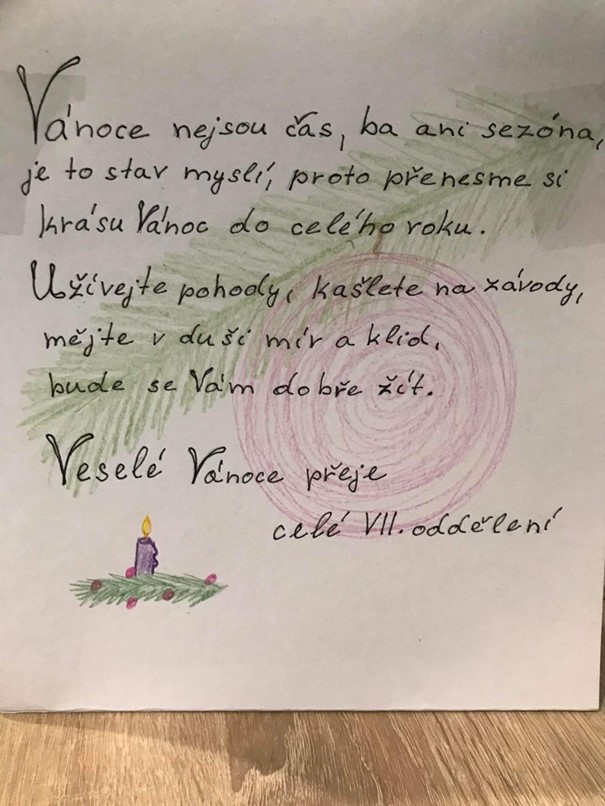 Vánoce nejsou čas, ba ani sezóna,
je to stav myslí, proto přenesme si
krásu Vánoc do celého roku.
Užívejte pohody, kašlete na závody,
mějte v duši mír a klid,
bude se Vám dobře žít.
Veselé Vánoce přeje
celé VII. oddělení